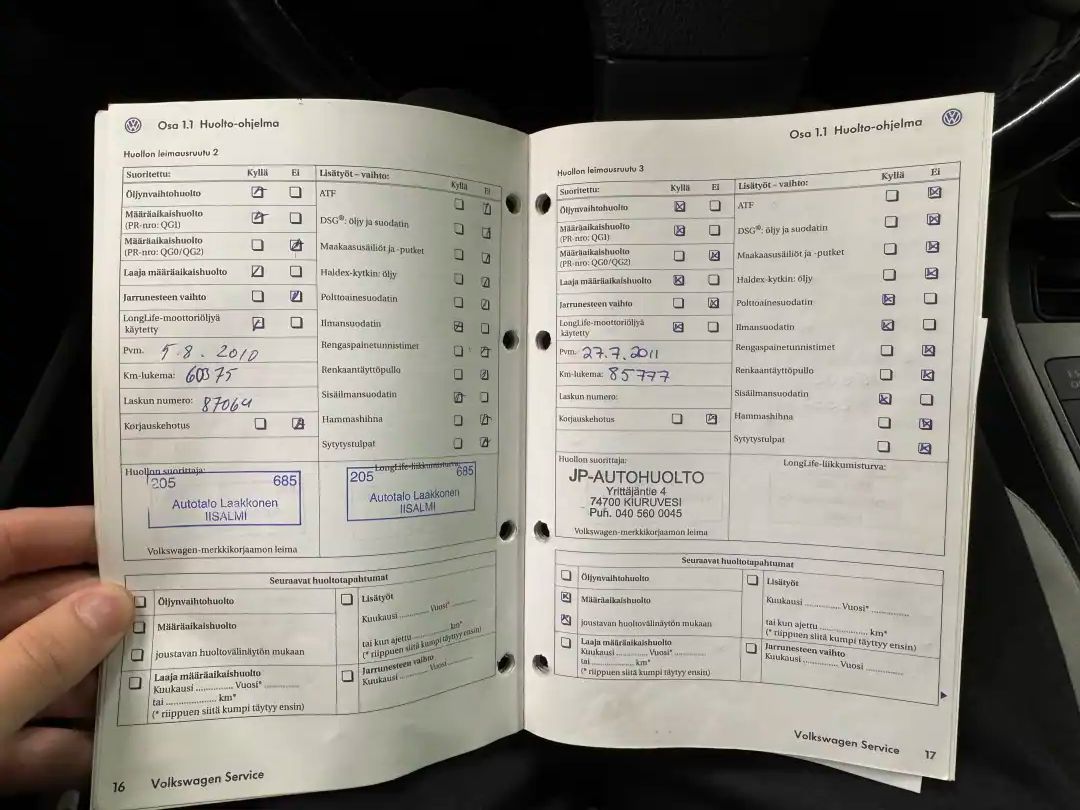 Osa 1.1 Huolto-ohjelma
Huollon leimausruutu 2
Suoritettu: Kyllä Ei
Öljynvaihtohuolto
Määräaikaishuolto
(PR-nro: QG1)
Määräaikaishuolto
(PR-nro: QG0/QG2)
Laaja määräaikaishuolto
Jarrunesteen vaihto
LongLife-moottoriöljyä
käytetty
Pvm. 5.8.2010
Km-lukema: 60375
Laskun numero: 87064
Korjauskehotus
Lisätyöt – vaihto: Kyllä Ei
ATF
DSG®: öljy ja suodatin
Maakaasusäiliöt ja -putket
Haldex-kytkin: öljy
Polttoainesuodatin
Ilmansuodatin
Rengaspainetunnistimet
Renkaantäyttöpullo
Sisäilmansuodatin
Hammashihna
Sytytystulpat
Huollon suorittaja:
205 685
Autotalo Laakkonen
IISALMI
Volkswagen-merkkikorjaamon leima
LongLife-liikkumisturva:
205 685
Autotalo Laakkonen
IISALMI
Seuraavat huoltotapahtumat
Öljynvaihtohuolto
Määräaikaishuolto
joustavan huoltovälinäytön mukaan
Laaja määräaikaishuolto
Kuukausi .............. Vuosi* ..............
tai .................... km*
(* riippuen siitä kumpi täytyy ensin)
Lisätyöt
Kuukausi ........... Vuosi* ...........
tai kun ajettu .............. km*
(* riippuen siitä kumpi täytyy ensin)
Jarrunesteen vaihto
Kuukausi ........... Vuosi ...........
16 Volkswagen Service
Osa 1.1 Huolto-ohjelma
Huollon leimausruutu 3
Suoritettu: Kyllä Ei
Öljynvaihtohuolto
Määräaikaishuolto
(PR-nro: QG1)
Määräaikaishuolto
(PR-nro: QG0/QG2)
Laaja määräaikaishuolto
Jarrunesteen vaihto
LongLife-moottoriöljyä
käytetty
Pvm. 27.7.2011
Km-lukema: 85777
Laskun numero:
Korjauskehotus
Lisätyöt – vaihto: Kyllä Ei
ATF
DSG®: öljy ja suodatin
Maakaasusäiliöt ja -putket
Haldex-kytkin: öljy
Polttoainesuodatin
Ilmansuodatin
Rengaspainetunnistimet
Renkaantäyttöpullo
Sisäilmansuodatin
Hammashihna
Sytytystulpat
Huollon suorittaja:
JP-AUTOHUOLTO
Yrittäjäntie 4
74700 KIURUVESI
Puh. 040 560 0045
Volkswagen-merkkikorjaamon leima
LongLife-liikkumisturva:
Seuraavat huoltotapahtumat
Öljynvaihtohuolto
Määräaikaishuolto
joustavan huoltovälinäytön mukaan
Laaja määräaikaishuolto
Kuukausi ........... Vuosi* ...........
tai .................. km*
(* riippuen siitä kumpi täytyy ensin)
Lisätyöt
Kuukausi .............. Vuosi* ..............
tai kun ajettu .................. km*
(* riippuen siitä kumpi täytyy ensin)
Jarrunesteen vaihto
Kuukausi .............. Vuosi ..............
Volkswagen Service 17